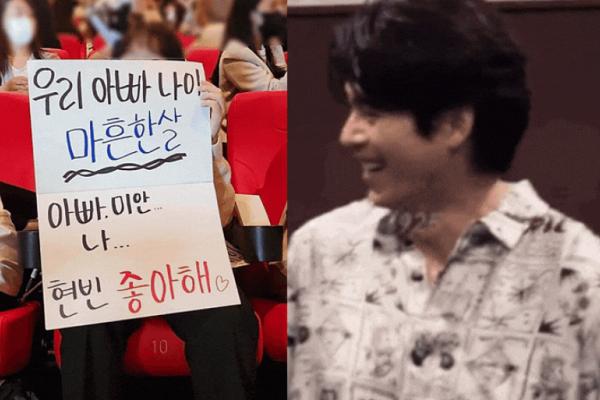 우리 아빠 나이
마흔한살
아빠.미안...
나...
현빈 좋아해♡
10